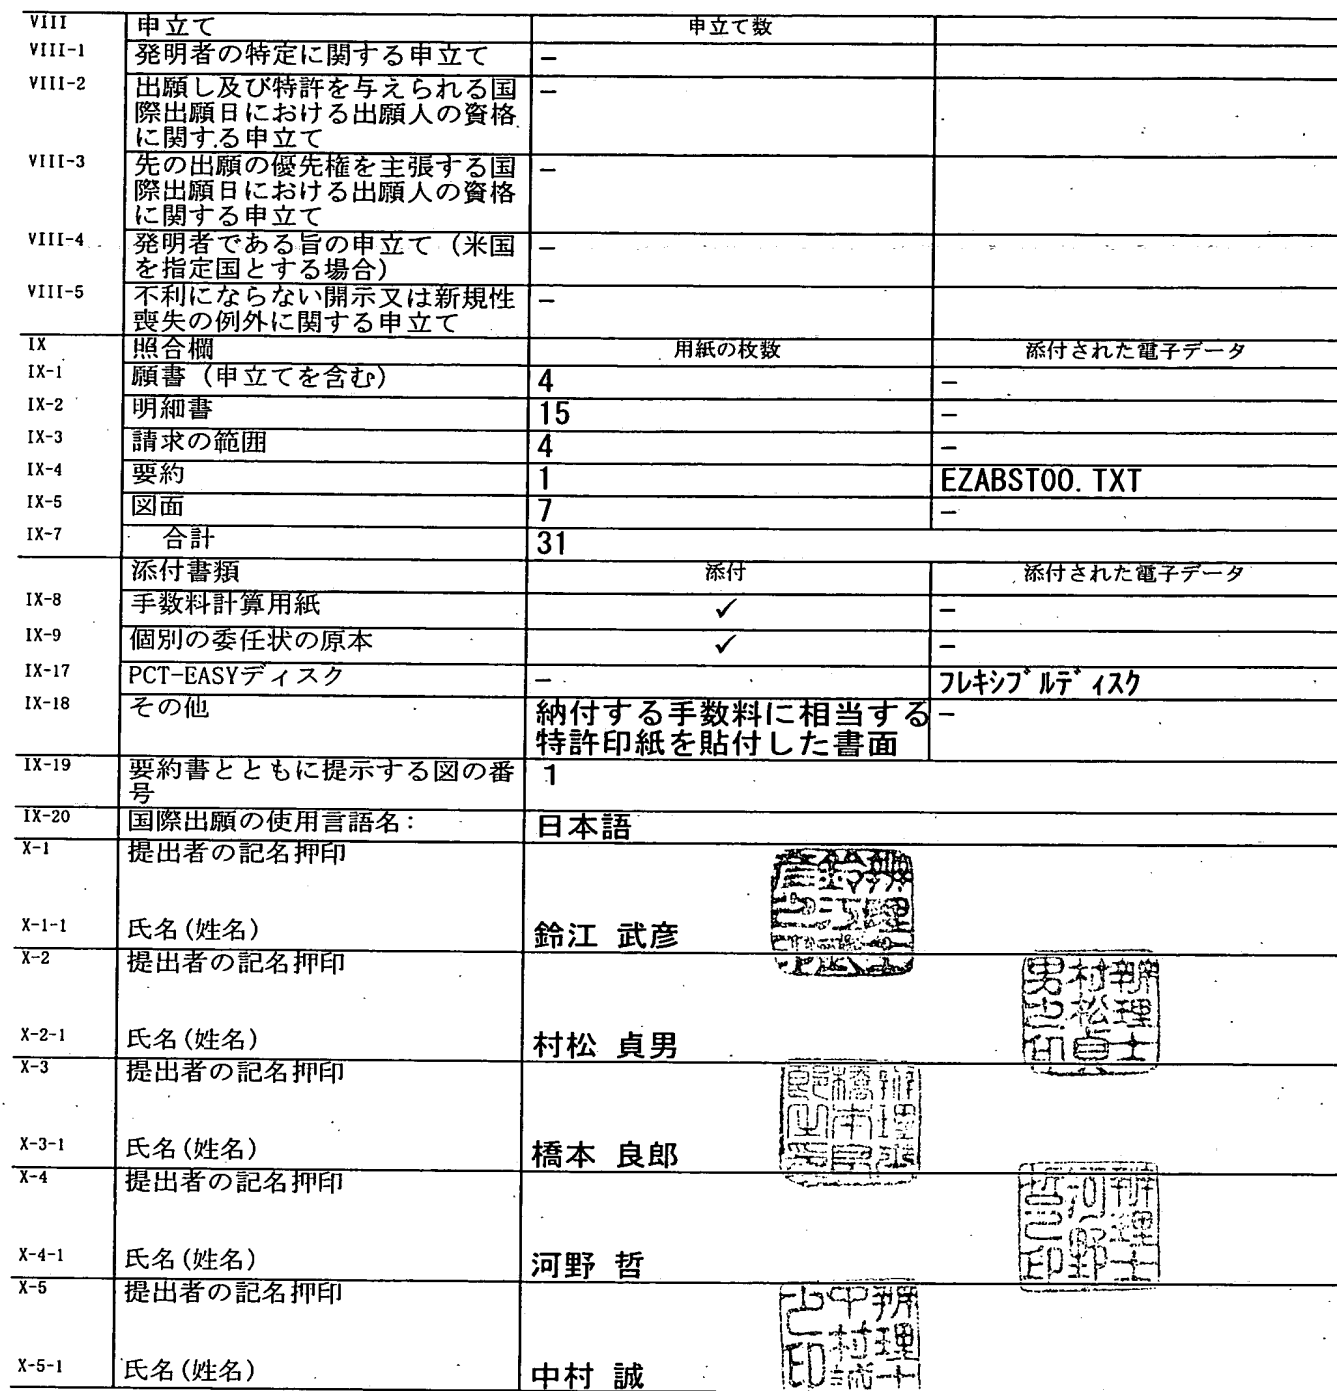 VIII 申立て 申立て数
VIII-1 発明者の特定に関する申立て –
VIII-2 出願し及び特許を与えられる国 –
際出願日における出願人の資格
に関する申立て
VIII-3 先の出願の優先権を主張する国 –
際出願日における出願人の資格
に関する申立て
VIII-4 発明者である旨の申立て（米国 –
を指定国とする場合）
VIII-5 不利にならない開示又は新規性 –
喪失の例外に関する申立て
IX 照合欄 用紙の枚数 添付された電子データ
IX-1 願書（申立てを含む） 4 –
IX-2 明細書 15 –
IX-3 請求の範囲 4 –
IX-4 要約 1 EZABST00.TXT
IX-5 図面 7 –
IX-7 合計 31
添付書類 添付 添付された電子データ
IX-8 手数料計算用紙 ✓ –
IX-9 個別の委任状の原本 ✓ –
IX-17 PCT-EASYディスク – フレキシブルディスク
IX-18 その他 納付する手数料に相当する –
特許印紙を貼付した書面
IX-19 要約書とともに提示する図の番 1
号
IX-20 国際出願の使用言語名： 日本語
X-1 提出者の記名押印
X-1-1 氏名(姓名) 鈴江 武彦
X-2 提出者の記名押印
辨理士
村松貞
男之印
X-2-1 氏名(姓名) 村松 貞男
X-3 提出者の記名押印
X-3-1 氏名(姓名) 橋本 良郎
X-4 提出者の記名押印
辨理士
河野
哲之印
X-4-1 氏名(姓名) 河野 哲
X-5 提出者の記名押印
辨理士
中村誠
之印
X-5-1 氏名(姓名) 中村 誠